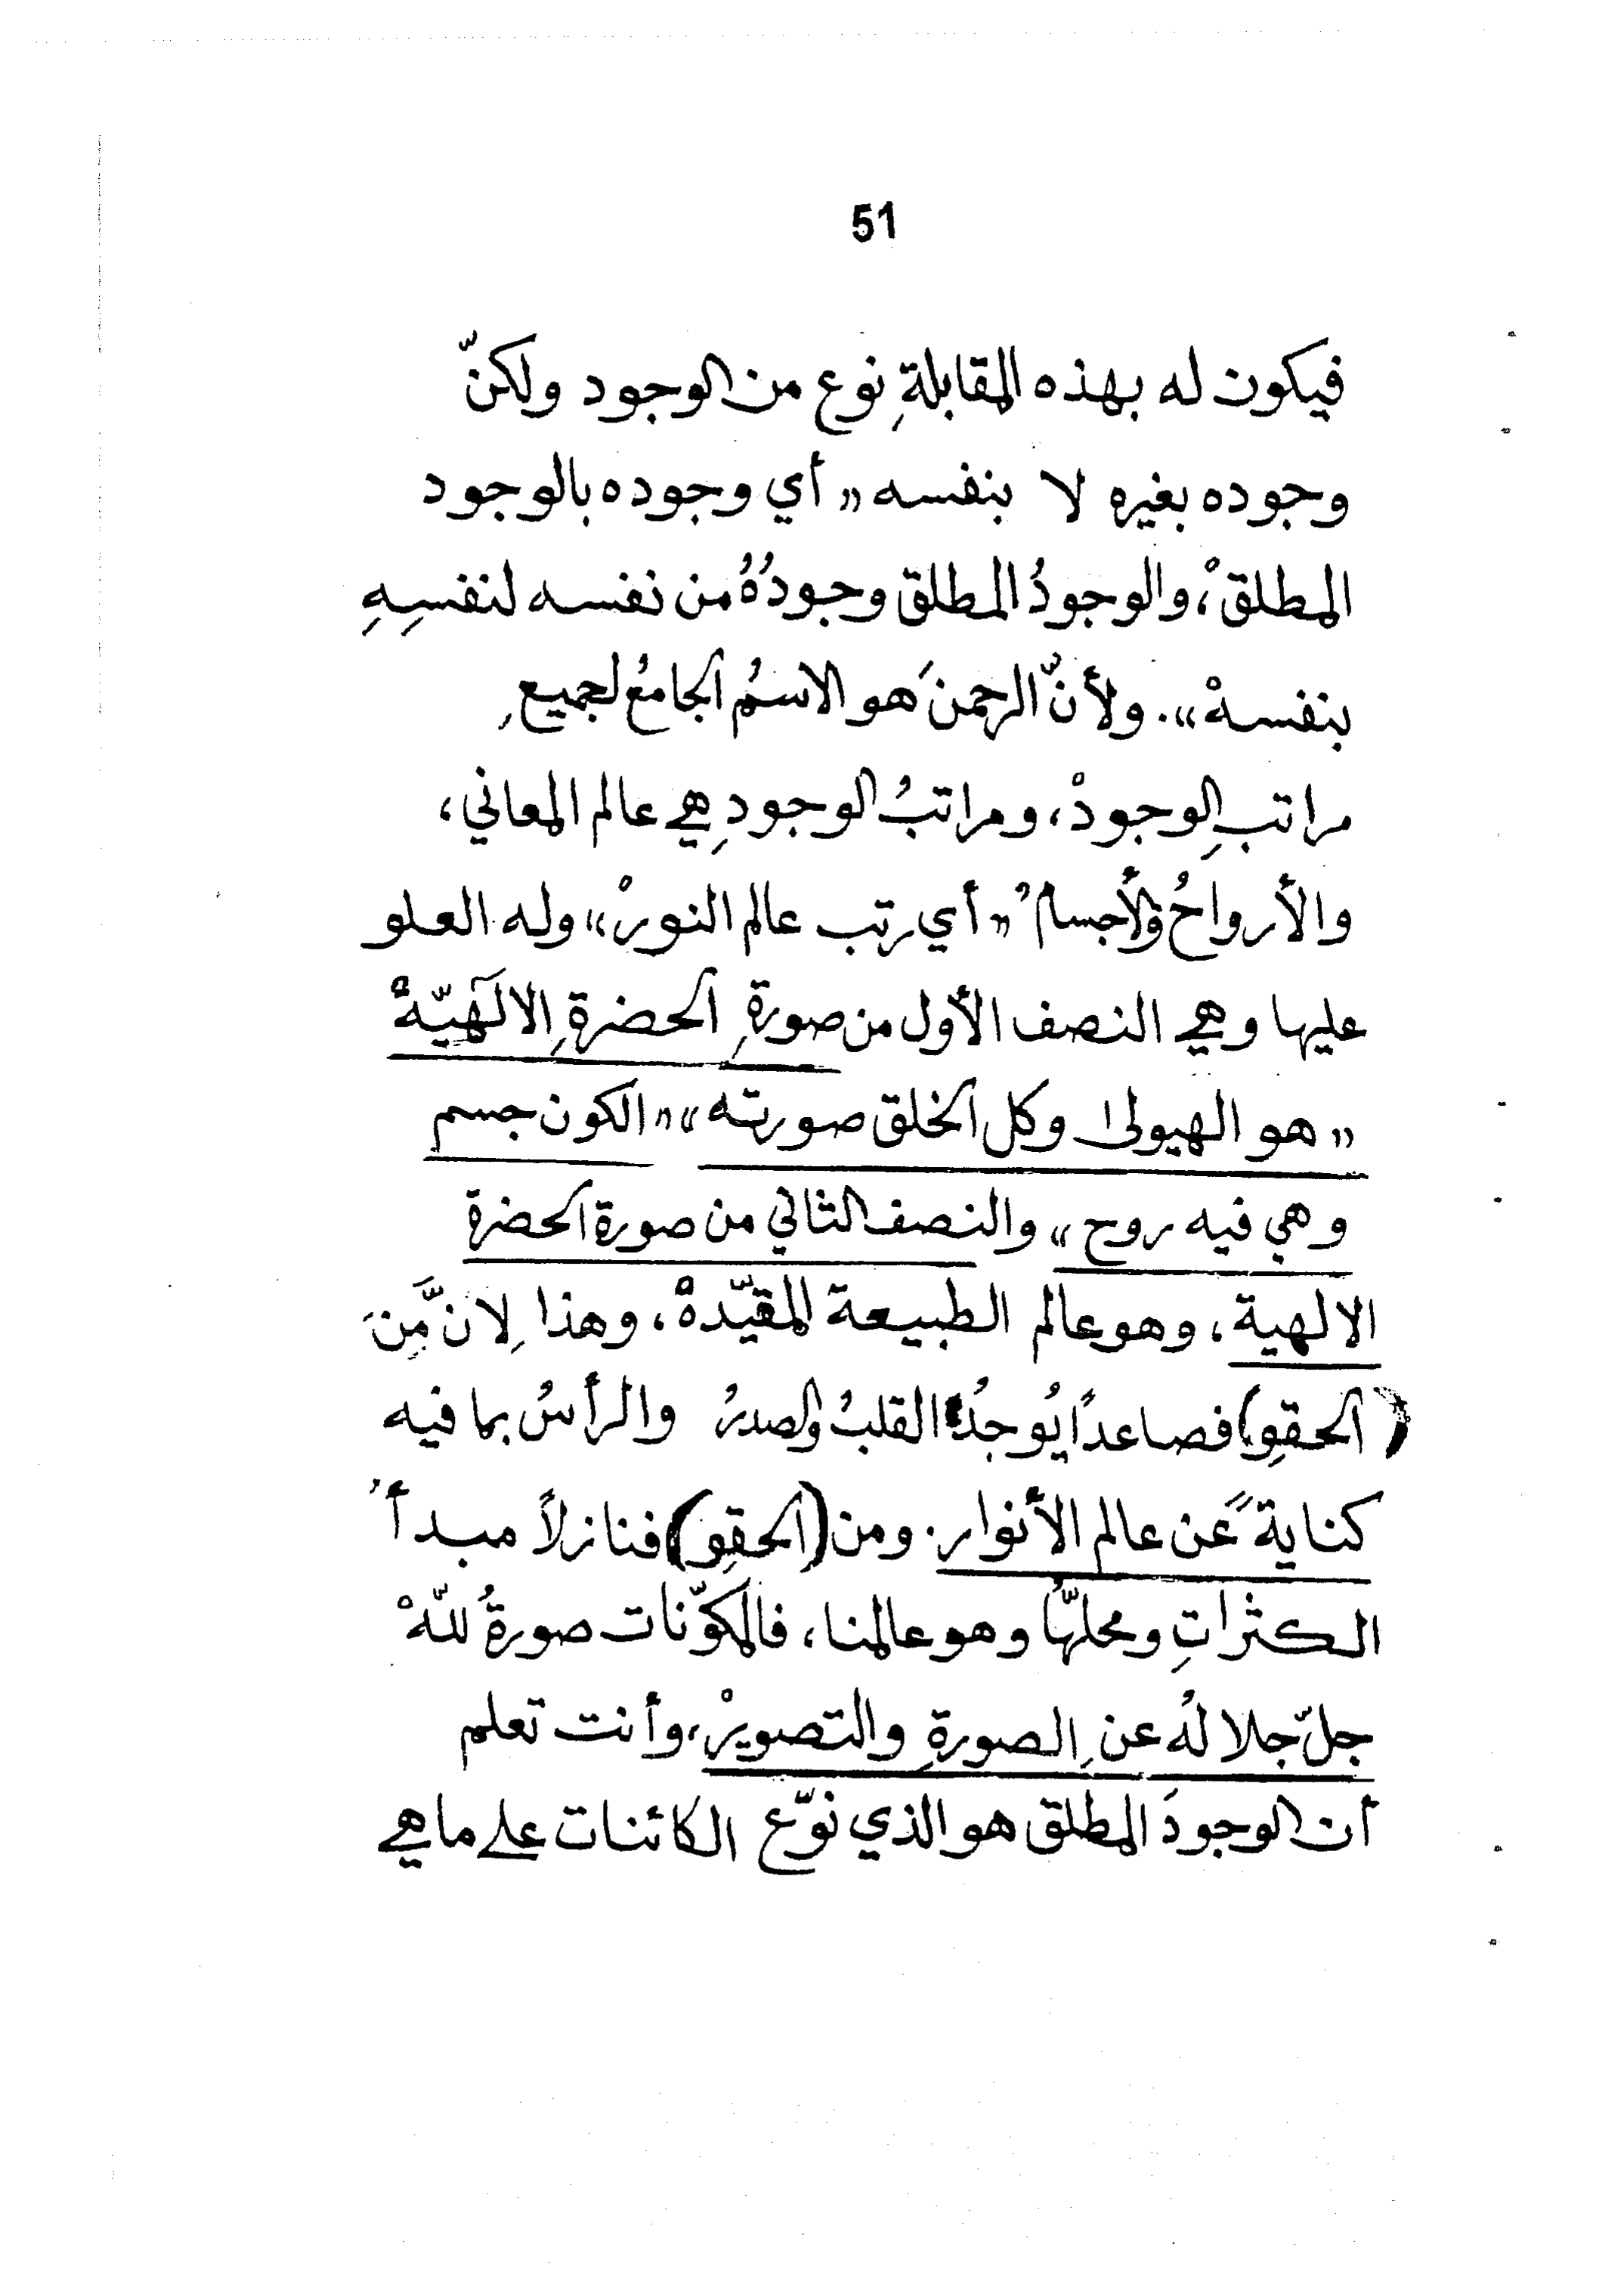 51
فيكون له بهذه المقابلةِ نوع من الوجود ولكنّ
وجوده بغيره لا بنفسه «أي وجوده بالوجود
المطلقْ، والوجودُ المطلق وجودُهُ من نفسه لنفسِهِ
بنفسهْ». ولأنّ الرحمنَ هو الاسمُ الجامعُ لجميعِ
مراتبِ الوجودْ، ومراتبُ الوجودِ هي عالم المعاني،
والأرواحُ والأجسامُ «أي رتب عالم النورْ» وله العلو
عليها وهي النصف الأول من صورةِ الحضرةِ الالَهيّهْ
«هو الهيولى وكل الخلق صورته» «الكون جسم
وهي فيه روح» والنصف الثاني من صورة الحضرة
الالهية، وهو عالم الطبيعة المقيّدهْ، وهذا لِانَّ مِنَ
(الحقوِ) فصاعداً يُوجدُ القلبُ والصدرُ والرأسُ بما فيه
كنايةً عن عالم الأنوار. ومن (الحقوِ) فنازلاً مبدأُ
الكثراتِ ومحلّهُا وهو عالمنا، فالمكوّنات صورةُ للّهْ
جلّ جلالهُ عنِ الصورةِ والتصويرْ، وأنت تعلم
أن الوجودَ المطلق هو الذي نوّع الكائنات على ما هي